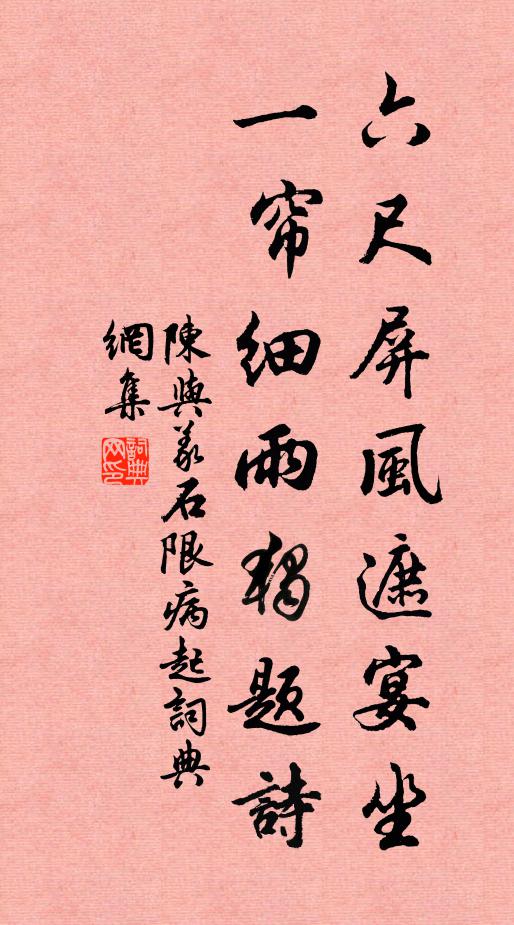 六尺屏風遮宴坐
一帘細雨獨題詩
陳與義石限病起詞典
網集
詞典網印